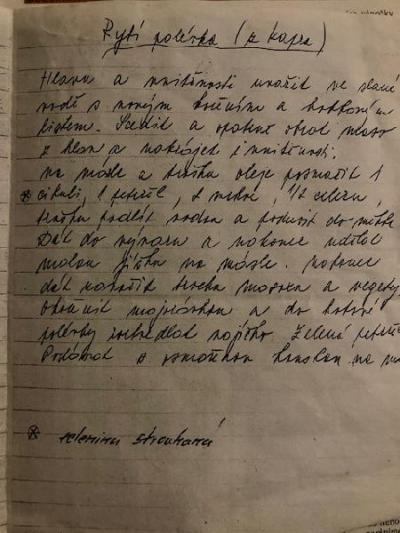 Rybí polévka (z kapra)
Hlavu a vnitřnosti uvařit ve slané
vodě s novým kořením a bobkovým
listem. Scedit a opatrně obrat maso
z hlavy a nakrájet i vnitřnosti.
Na másle a trošku oleje posmažit 1
⊛ cibuli, 1 petržel, 2 mrkve, 1/2 celeru,
trošku podlít vodou a podusit do měkka
Dát do vývaru a nakonec udělat
malou jíšku na másle. Nakonec
dát trochu a vegety
Okořenit majoránkou a do hotové
polévky rozšvedlat vajíčko. Zelená petržel
Podávat s osmaženou houskou na
⊛ zelenina strouhaná